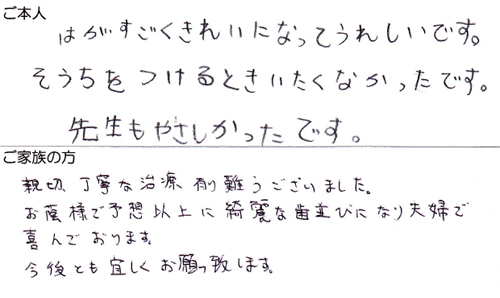 ご本人
はがすごくきれいになってうれしいです。
そうちをつけるときいたくなかったです。
先生もやさしかったです。
ご家族の方
親切、丁寧な治療 有り難うございました。
お蔭様で予想以上に綺麗な歯並びになり夫婦で
喜んでおります。
今後とも宜しくお願い致します。